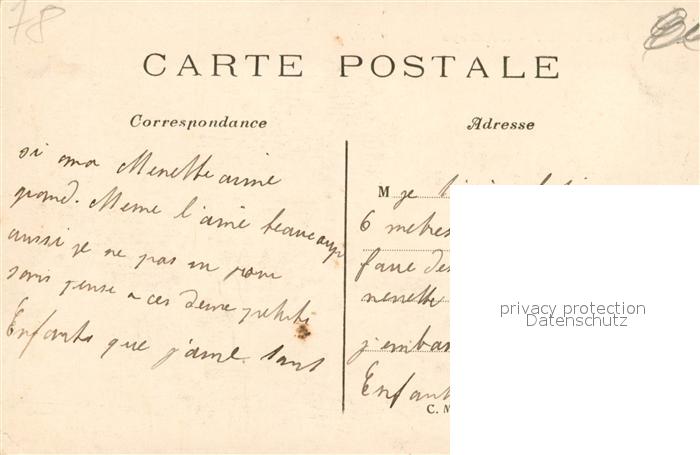 78
CARTE POSTALE
Correspondance
Adresse
si ma Nenette aime
grand. Meme l'aime beaucoup
aussi je ne pas un jour
sans pense a ces deux petits
Enfants que j'aime tant
M je
6 metres
faire des
nenette
j'embras
Enfant
C. M
privacy protection
Datenschutz